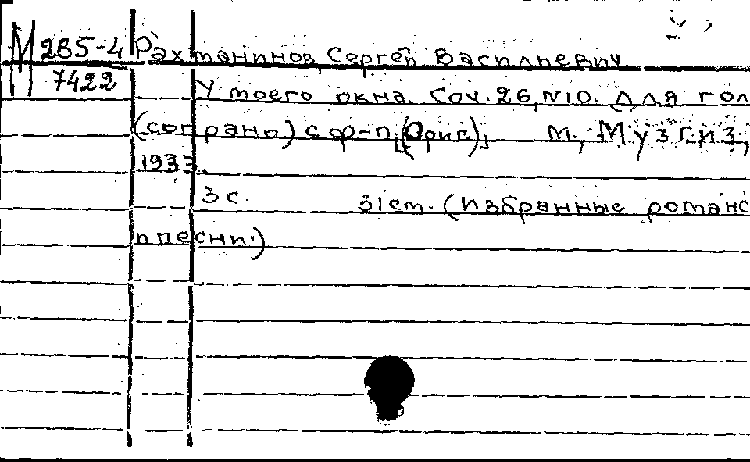 М 285-4
7422
Рахманинов, Сергей Васильевич
У моего окна. Соч. 26, №10. Для гол
(сопрано) с ф-п. (Ориг.). М., Музгиз,
1933.
3 с. 31 см. (Избранные романс
и песни.)